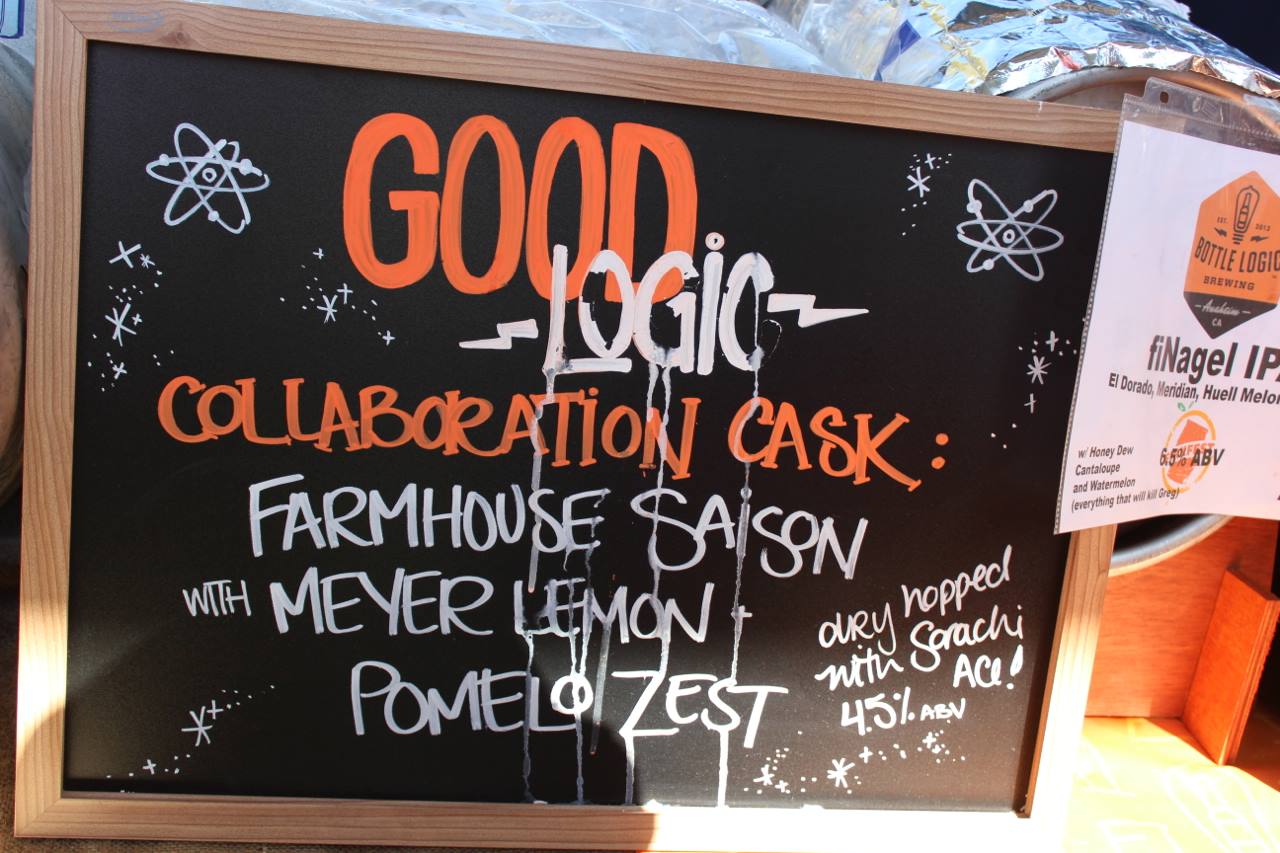 GOOD
LOGIC
COLLABORATION CASK:
FARMHOUSE SAISON
WITH MEYER LEMON +
POMELO ZEST
dry hopped
with Sorachi
Ace!
4.5% ABV
EST. 2013
BOTTLE LOGIC
BREWING
Anaheim
CA
fiNagel IPA
El Dorado, Meridian, Huell Melon
6.5% ABV
w/ Honey Dew
Cantaloupe
and Watermelon
(everything that will kill Greg)